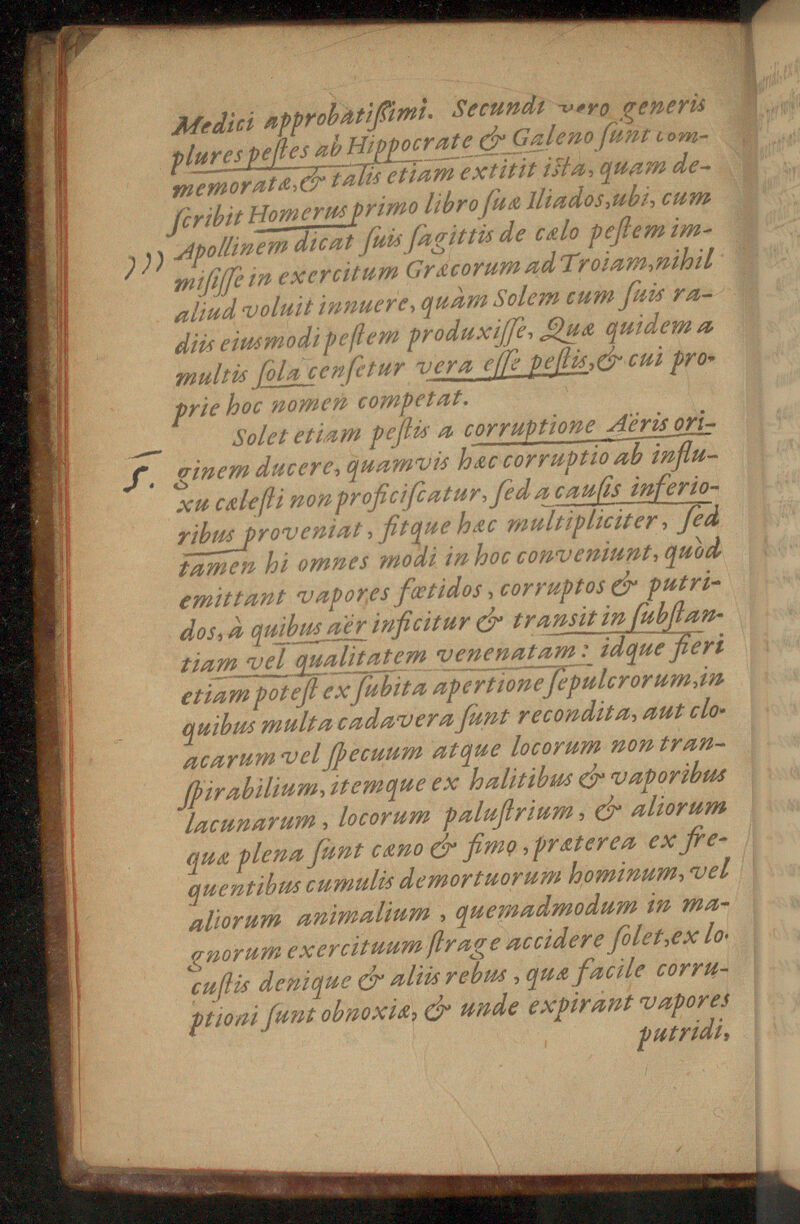 Medici approbatiſſimi. Secundi vero generis
plures peſtes ab Hippocrate & Galeno ſunt com-
memoratæ, & talis etiam extitit iſta, quam de-
ſcribit Homerus primo libro ſuæ Iliados, ubi, cum
))) Apollinem dicat ſuis ſagittis de cælo peſtem im-
miſiſſe in exercitum Græcorum ad Troiam, nihil
aliud voluit innuere, quàm Solem cum ſuis ra-
diis eiusmodi peſtem produxiſſe, Quæ quidem a
multis ſola cenſetur vera eſſe peſtis, & cui pro-
prie hoc nomen competat.
Solet etiam peſtis a corruptione Aëris ori-
ſ. ginem ducere, quamvis hæc corruptio ab influ-
xu cæleſti non proficiſcatur, ſed a cauſis inferio-
ribus proveniat, fitque hæc multipliciter, ſed
tamen hi omnes modi in hoc conveniunt, quòd
emittant vapores fœtidos, corruptos & putri-
dos, à quibus aër inficitur & transit in ſubſtan-
tiam vel qualitatem venenatam: idque fieri
etiam poteſt ex ſubita apertione ſepulcrorum, in
quibus multa cadavera ſunt recondita, aut clo-
acarum vel ſpecuum atque locorum non tran-
ſpirabilium, itemque ex halitibus & vaporibus
lacunarum, locorum paluſtrium, & aliorum
quæ plena ſunt cæno & fimo, præterea ex fre-
quentibus cumulis demortuorum hominum, vel
aliorum animalium, quemadmodum in ma-
gnorum exercituum ſtrage accidere ſolet, ex lo-
cuſtis denique & aliis rebus, quæ facile corru-
ptioni ſunt obnoxiæ, & unde expirant vapores
putridi,